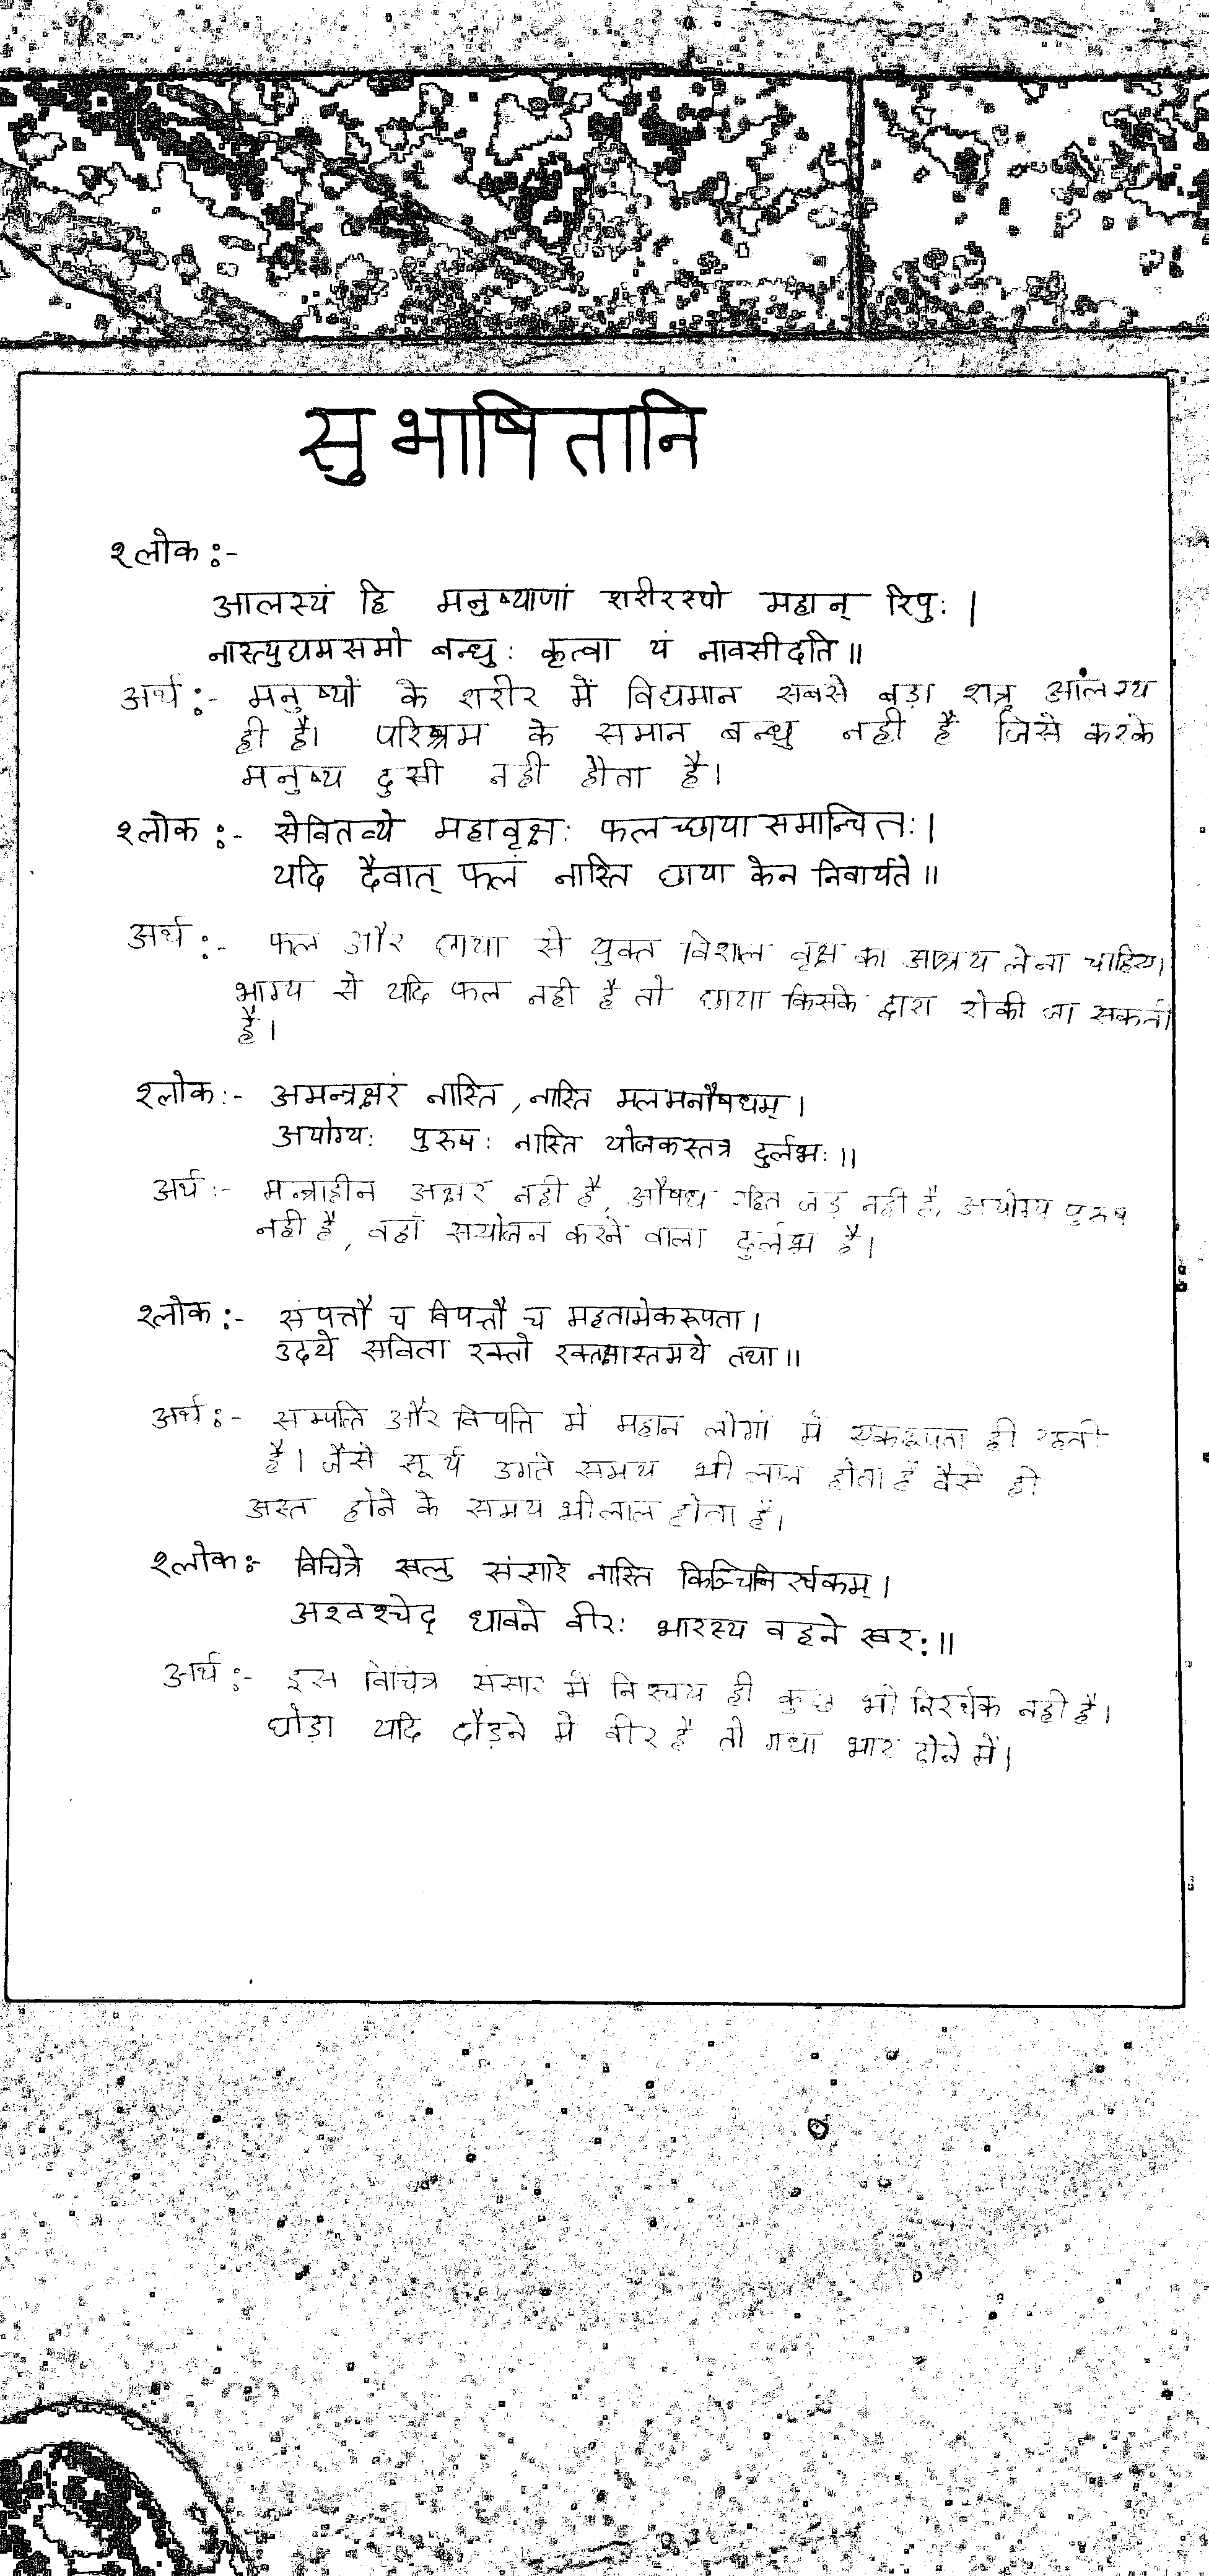 सुभाषितानि
श्लोक :-
आलस्यं हि मनुष्याणां शरीरस्थो महान् रिपुः ।
नास्त्युद्यमसमो बन्धुः कृत्वा यं नावसीदति ॥
अर्थ :- मनुष्यों के शरीर में विद्यमान सबसे बड़ा शत्रु आंलस्य
ही है। परिश्रम के समान बन्धु नही है जिसे करके
मनुष्य दुसी नही होता है।
श्लोक :- सेवितव्ये महावृक्षः फलच्छाया समान्वितः ।
यदि दैवात् फलं नास्ति छाया केन निवार्यते ॥
अर्थ :- फल और छाया से युक्त विशाल वृक्ष का आश्रय लेना चाहिए।
भाग्य से यदि फल नही है तो छाया किसके द्वारा रोकी जा सकती
है।
श्लोक :- अमन्त्रक्षरं नास्ति , नास्ति मलमनौषधम् ।
अयोग्यः पुरुषः नास्ति योजकस्तत्र दुर्लभः ॥
अर्थ :- मन्त्राहीन अक्षर नही है, औषध रहित जड़ नही है, अयोग्य पुरुष
नही है, वहाँ संयोजन करने वाला दुर्लभ है।
श्लोक :- संपत्तौ च विपत्तौ च महतामेकरूपता ।
उदये सविता रक्तो रक्तश्चास्तमये तथा ॥
अर्थ :- सम्पत्ति और विपत्ति में महान लोगों में एकरूपता ही रहती
है। जैसे सूर्य उगते समय भी लाल होता है वैसे ही
अस्त होने के समय भी लाल होता है।
श्लोक :- विचित्रे खलु संसारे नास्ति किञ्चिनिर्रथकम् ।
अश्वश्चेद् धावने वीरः भारस्य वहने खरः ॥
अर्थ :- इस विचित्र संसार में निश्चय ही कुछ भी निरर्थक नही है।
घोड़ा यदि दौड़ने में वीर है तो गधा भार ढोने में।